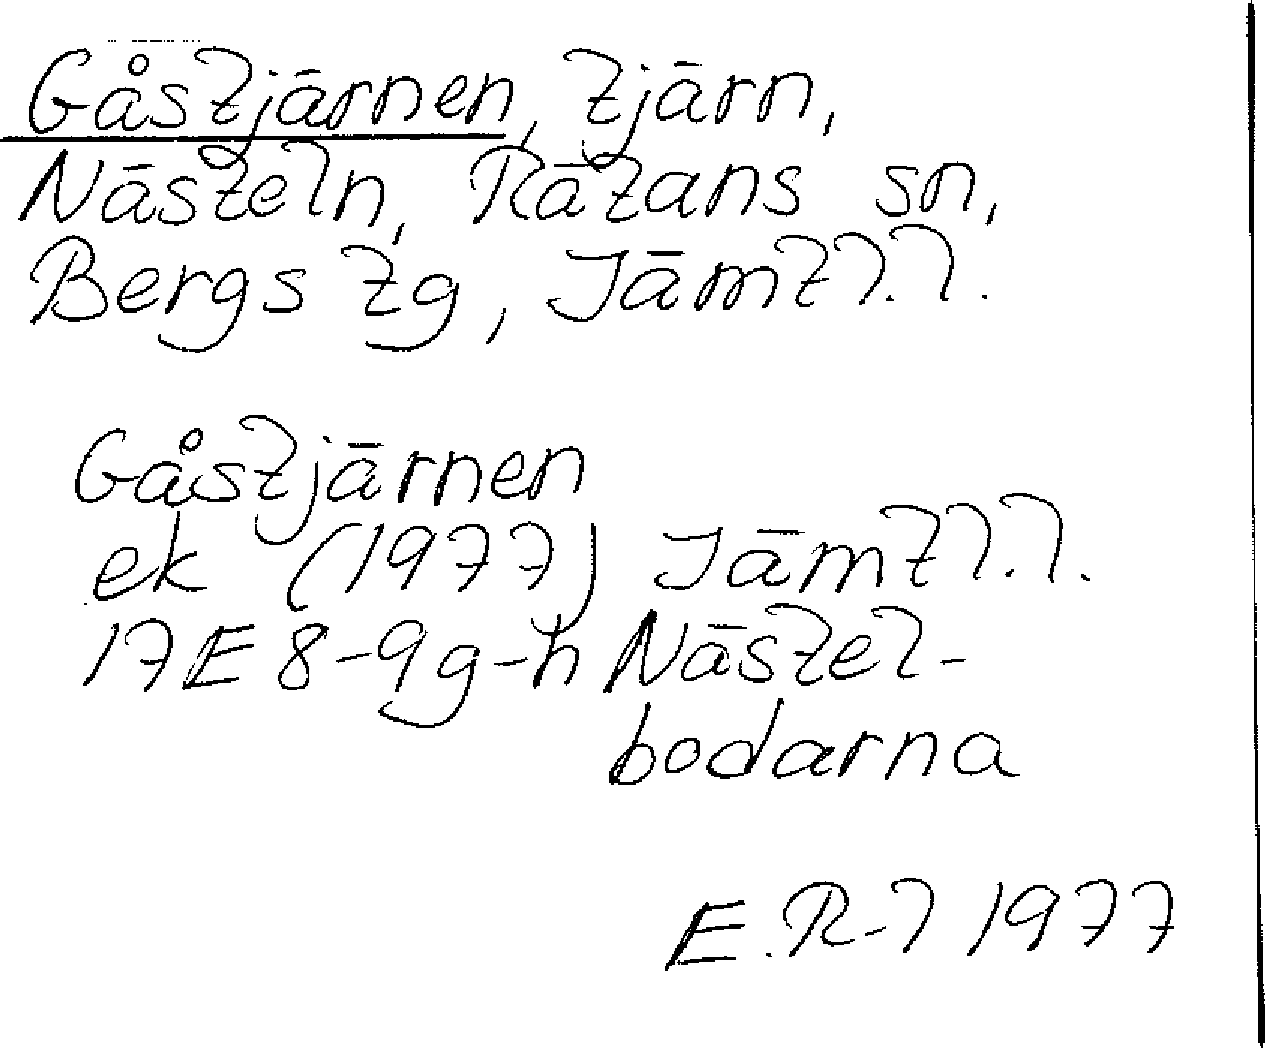 Gåstjärnen, tjärn,
Nästeln, Rätans sn,
Bergs tg, Jämtl.l.
Gåstjärnen
ek (1977) Jämtl.l.
17E 8-9g-h Nästel-
bodarna
E.R-l 1977